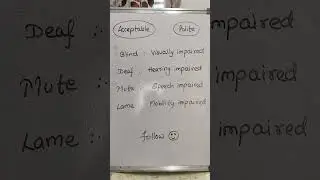 Acceptable Polite
Blind :- Visually impaired
Deaf Hearing impaired
Mute Speech impaired
Lame Mobility impaired
follow
Deaf :
Mute :
Lame :-
impaired